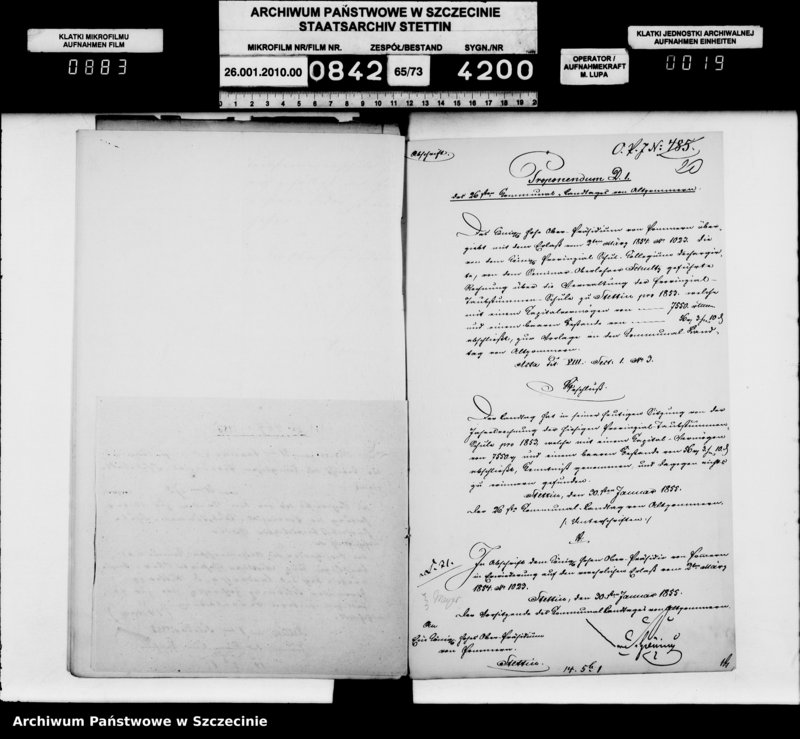 ARCHIWUM PAŃSTWOWE W SZCZECINIE
STAATSARCHIV STETTIN
KLATKI MIKROFILMU
AUFNAHMEN FILM
0883
MIKROFILM NR/FILM NR. ZESPÓŁ/BESTAND SYGN./NR
26.001.2010.00 0842 65/73 4200
0 1 2 3 4 5 6 7 8 9 10 11 12 13 14 15 16 17 18 19 20
OPERATOR /
AUFNAHMEKRAFT
M. LUPA
KLATKI JEDNOSTKI ARCHIWALNEJ
AUFNAHMEN EINHEITEN
0019
Abschrift.
O. P. J No. 485.
20
Proponendum D. 1.
des 26sten Communal-Landtages von Altpommern.
Das Königl. Hohe Ober-Präsidium von Pommern über-
giebt mit dem Erlaß vom 9ten März 1854 No 1023. die
von dem Königl. Provinzial Schul-Collegium dechargir-
te, von dem Seminar-Oberlehrer Schultz geführte
Rechnung über die Verwaltung der Provinzial-
Taubstummen-Schule zu Stettin pro 1853. welche
mit einem Capitalvermögen von 7550.
und einem baaren Bestande von
abschließt, zur Vorlage an den Communal Land-
tag von Altpommern.
Acta Tit VIII. Sect. 1. No 3.
Beschluß.
Der Landtag hat in seiner heutigen Sitzung von der
Jahresrechnung der hiesigen Provinzial-Taubstummen-
Schule pro 1853. welche mit einem Capital-Vermögen
von 7550 und einem baaren Bestande von
abschließt, Kenntniß genommen, und dagegen nichts
zu erinnern gefunden.
Stettin, den 30sten Januar 1855.
Der 26ste Communal-Landtag von Altpommern.
/: Unterschriften :/
In Abschrift dem Königl. Hohen Ober-Präsidio von Pommern
in Erwiederung auf den verehrlichen Erlaß vom 9ten März
1854. No 1023.
Stettin, den 30sten Januar 1855.
Der Vorsitzende des Communal Landtages von Altpommern.
An
Ein Königl. Hohes Ober-Präsidium
von Pommern.
Stettin.
Archiwum Państwowe w Szczecinie